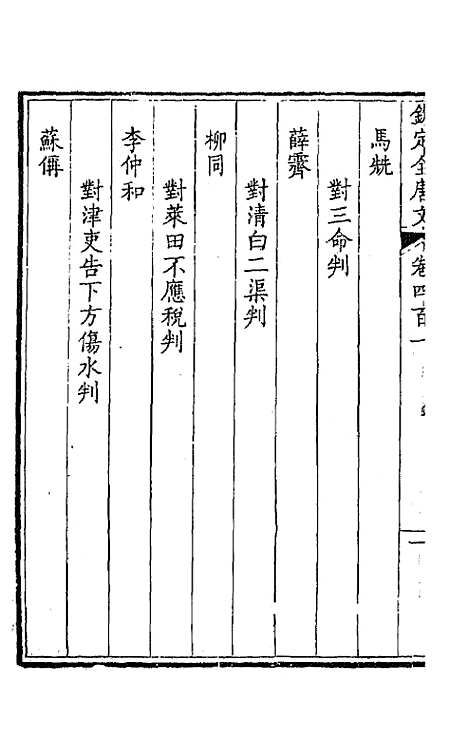 欽定全唐文 卷四百一
馬兟
對三命判
薛霽
對清白二渠判
柳同
對萊田不應稅判
李仲和
對津吏告下方傷水判
蘇傆